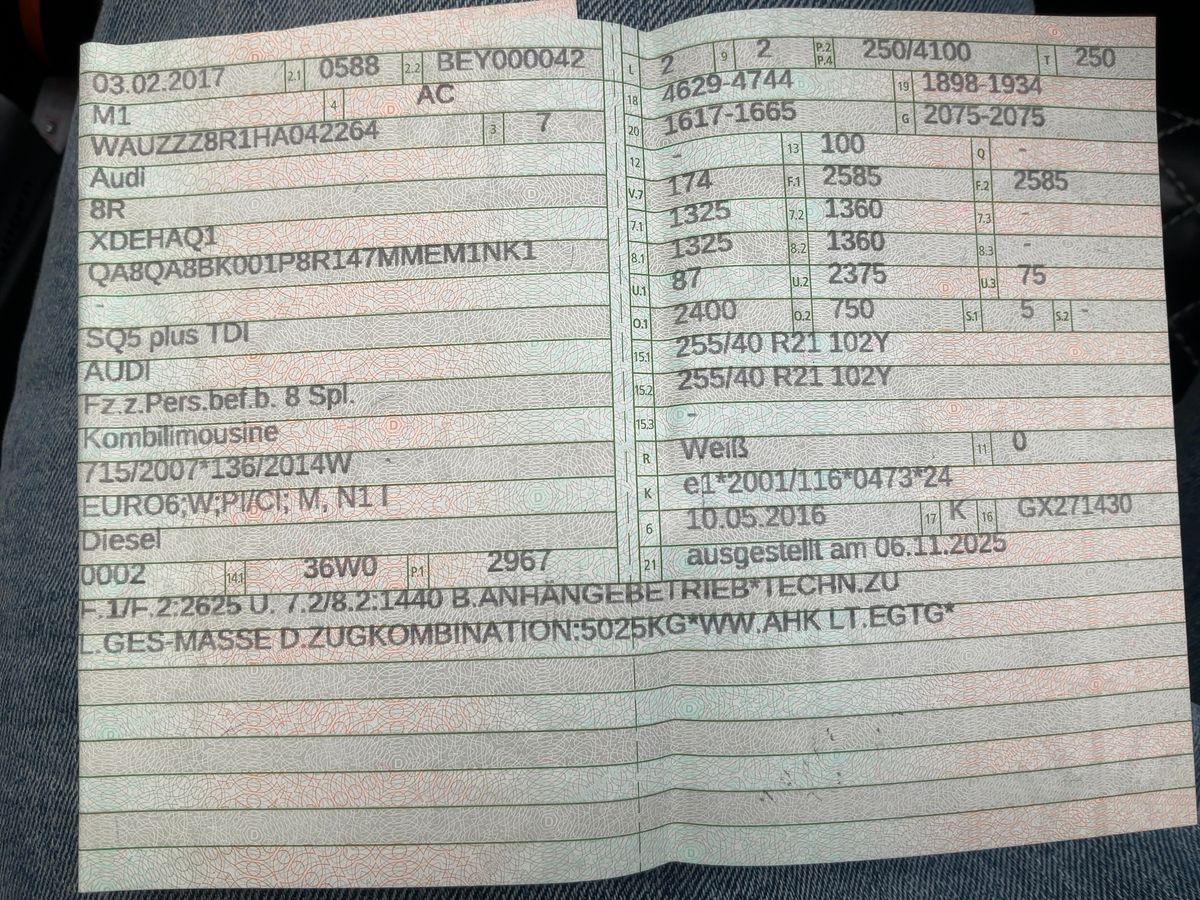 03.02.2017 2.1 0588 2.2 BEY000042
M1 4 AC
WAUZZZ8R1HA042264 3 7
Audi
8R
XDEHAQ1
QA8QA8BK001P8R147MMEM1NK1
-
SQ5 plus TDI
AUDI
Fz.z.Pers.bef.b. 8 Spl.
Kombilimousine
715/2007*136/2014W
EURO6;W;PI/CI; M, N1 I
Diesel
0002 14.1 36W0 P.1 2967
L 2 9 2 P.2 P.4 250/4100 T 250
18 4629-4744 19 1898-1934
20 1617-1665 G 2075-2075
12 - 13 100 Q -
V.7 174 F.1 2585 F.2 2585
7.1 1325 7.2 1360 7.3 -
8.1 1325 8.2 1360 8.3 -
U.1 87 U.2 2375 U.3 75
O.1 2400 O.2 750 S.1 5 S.2 -
15.1 255/40 R21 102Y
15.2 255/40 R21 102Y
15.3 -
R Weiß 11 0
K e1*2001/116*0473*24
6 10.05.2016 17 K 16 GX271430
21 ausgestellt am 06.11.2025
F.1/F.2:2625 U. 7.2/8.2:1440 B.ANHÄNGEBETRIEB*TECHN.ZU
L.GES-MASSE D.ZUGKOMBINATION:5025KG*WW.AHK LT.EGTG*